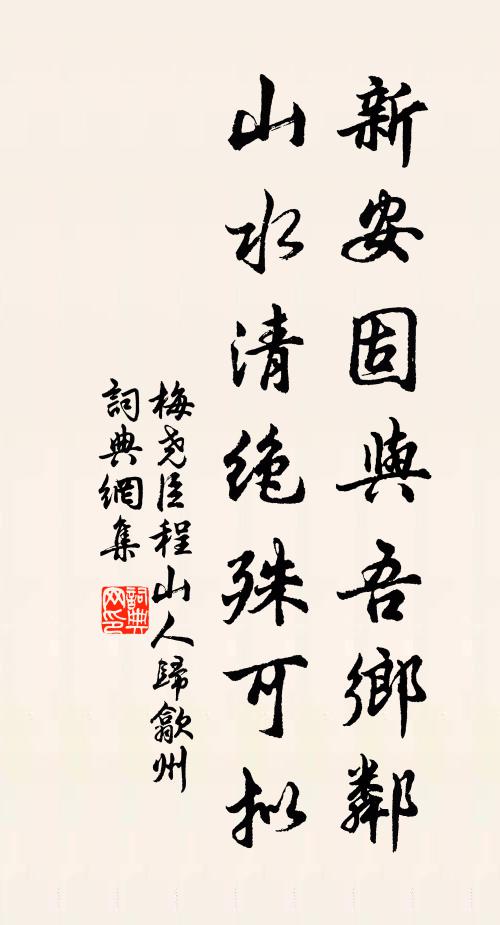 新安固與吾鄉鄰
山水清絶殊可擬
梅堯臣程山人歸歙州
詞典網集
詞典网印